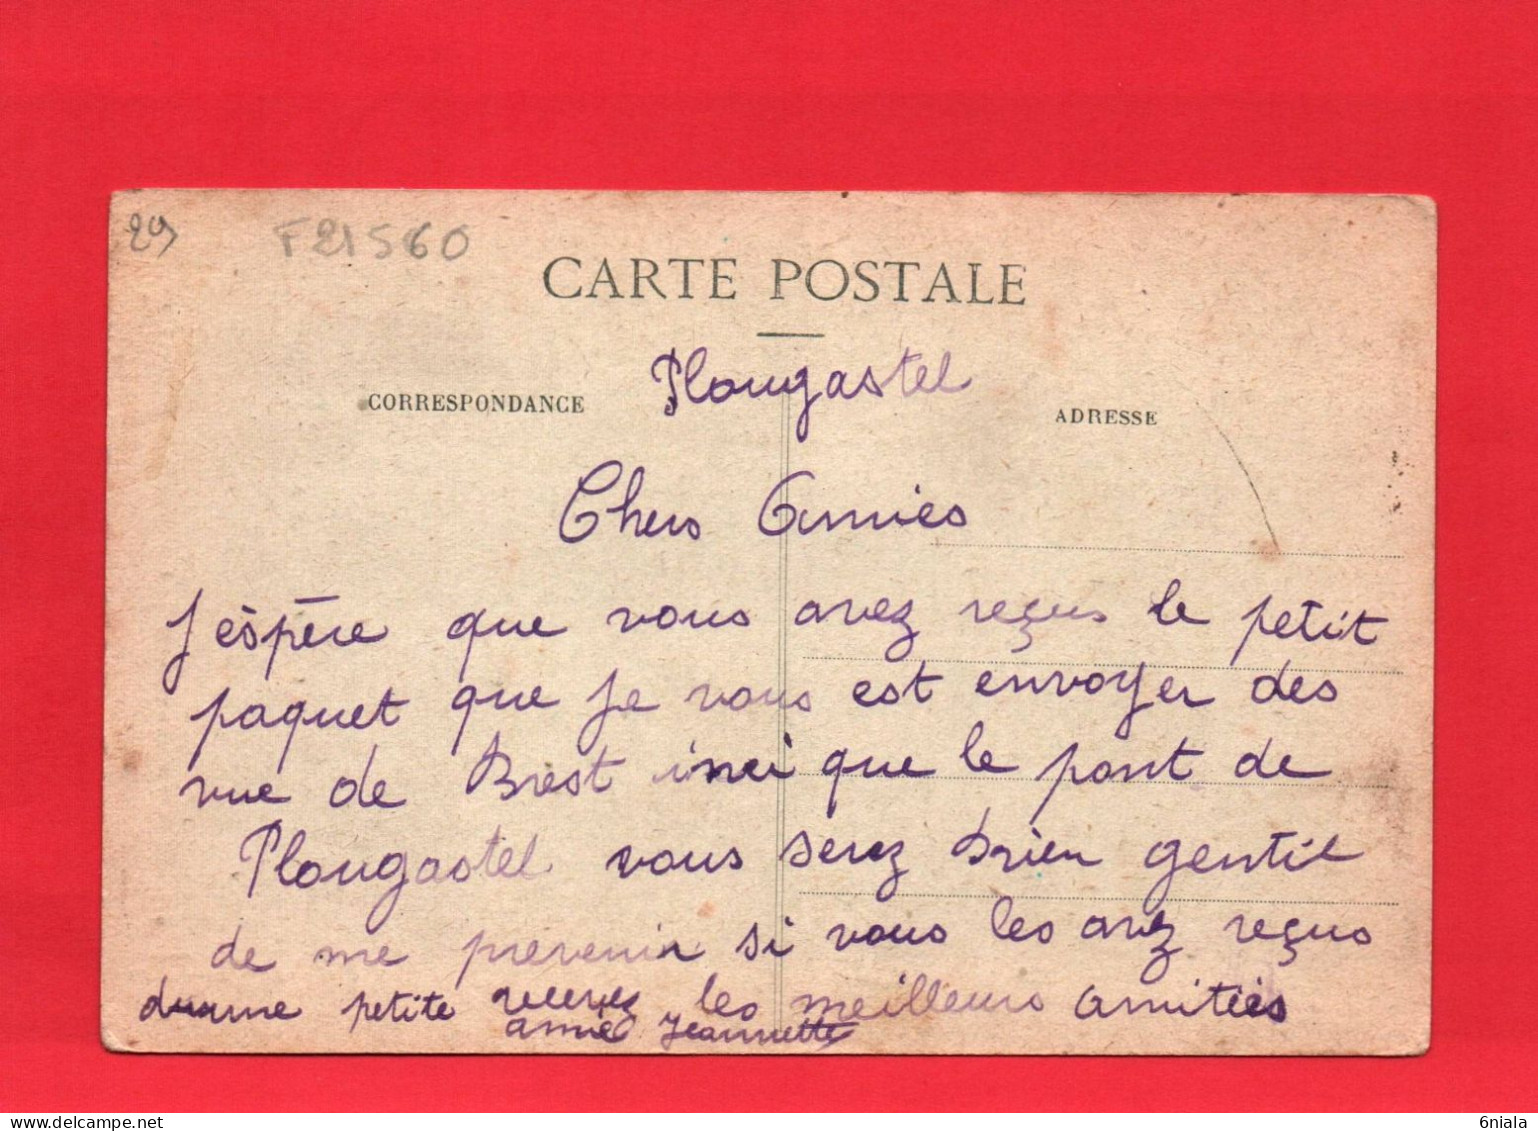 29
F21560
CARTE POSTALE
Plougastel
CORRESPONDANCE
ADRESSE
Chers Amies
J'espère que vous avez reçus le petit
paquet que Je vous est envoyer des
vue de Brest insi que le pont de
Plougastel vous serez bien gentil
de me prevenir si vous les avez reçus
dunne petite recevez les meilleurs amitiés
amie Jeannette
6niala
delcampe.net